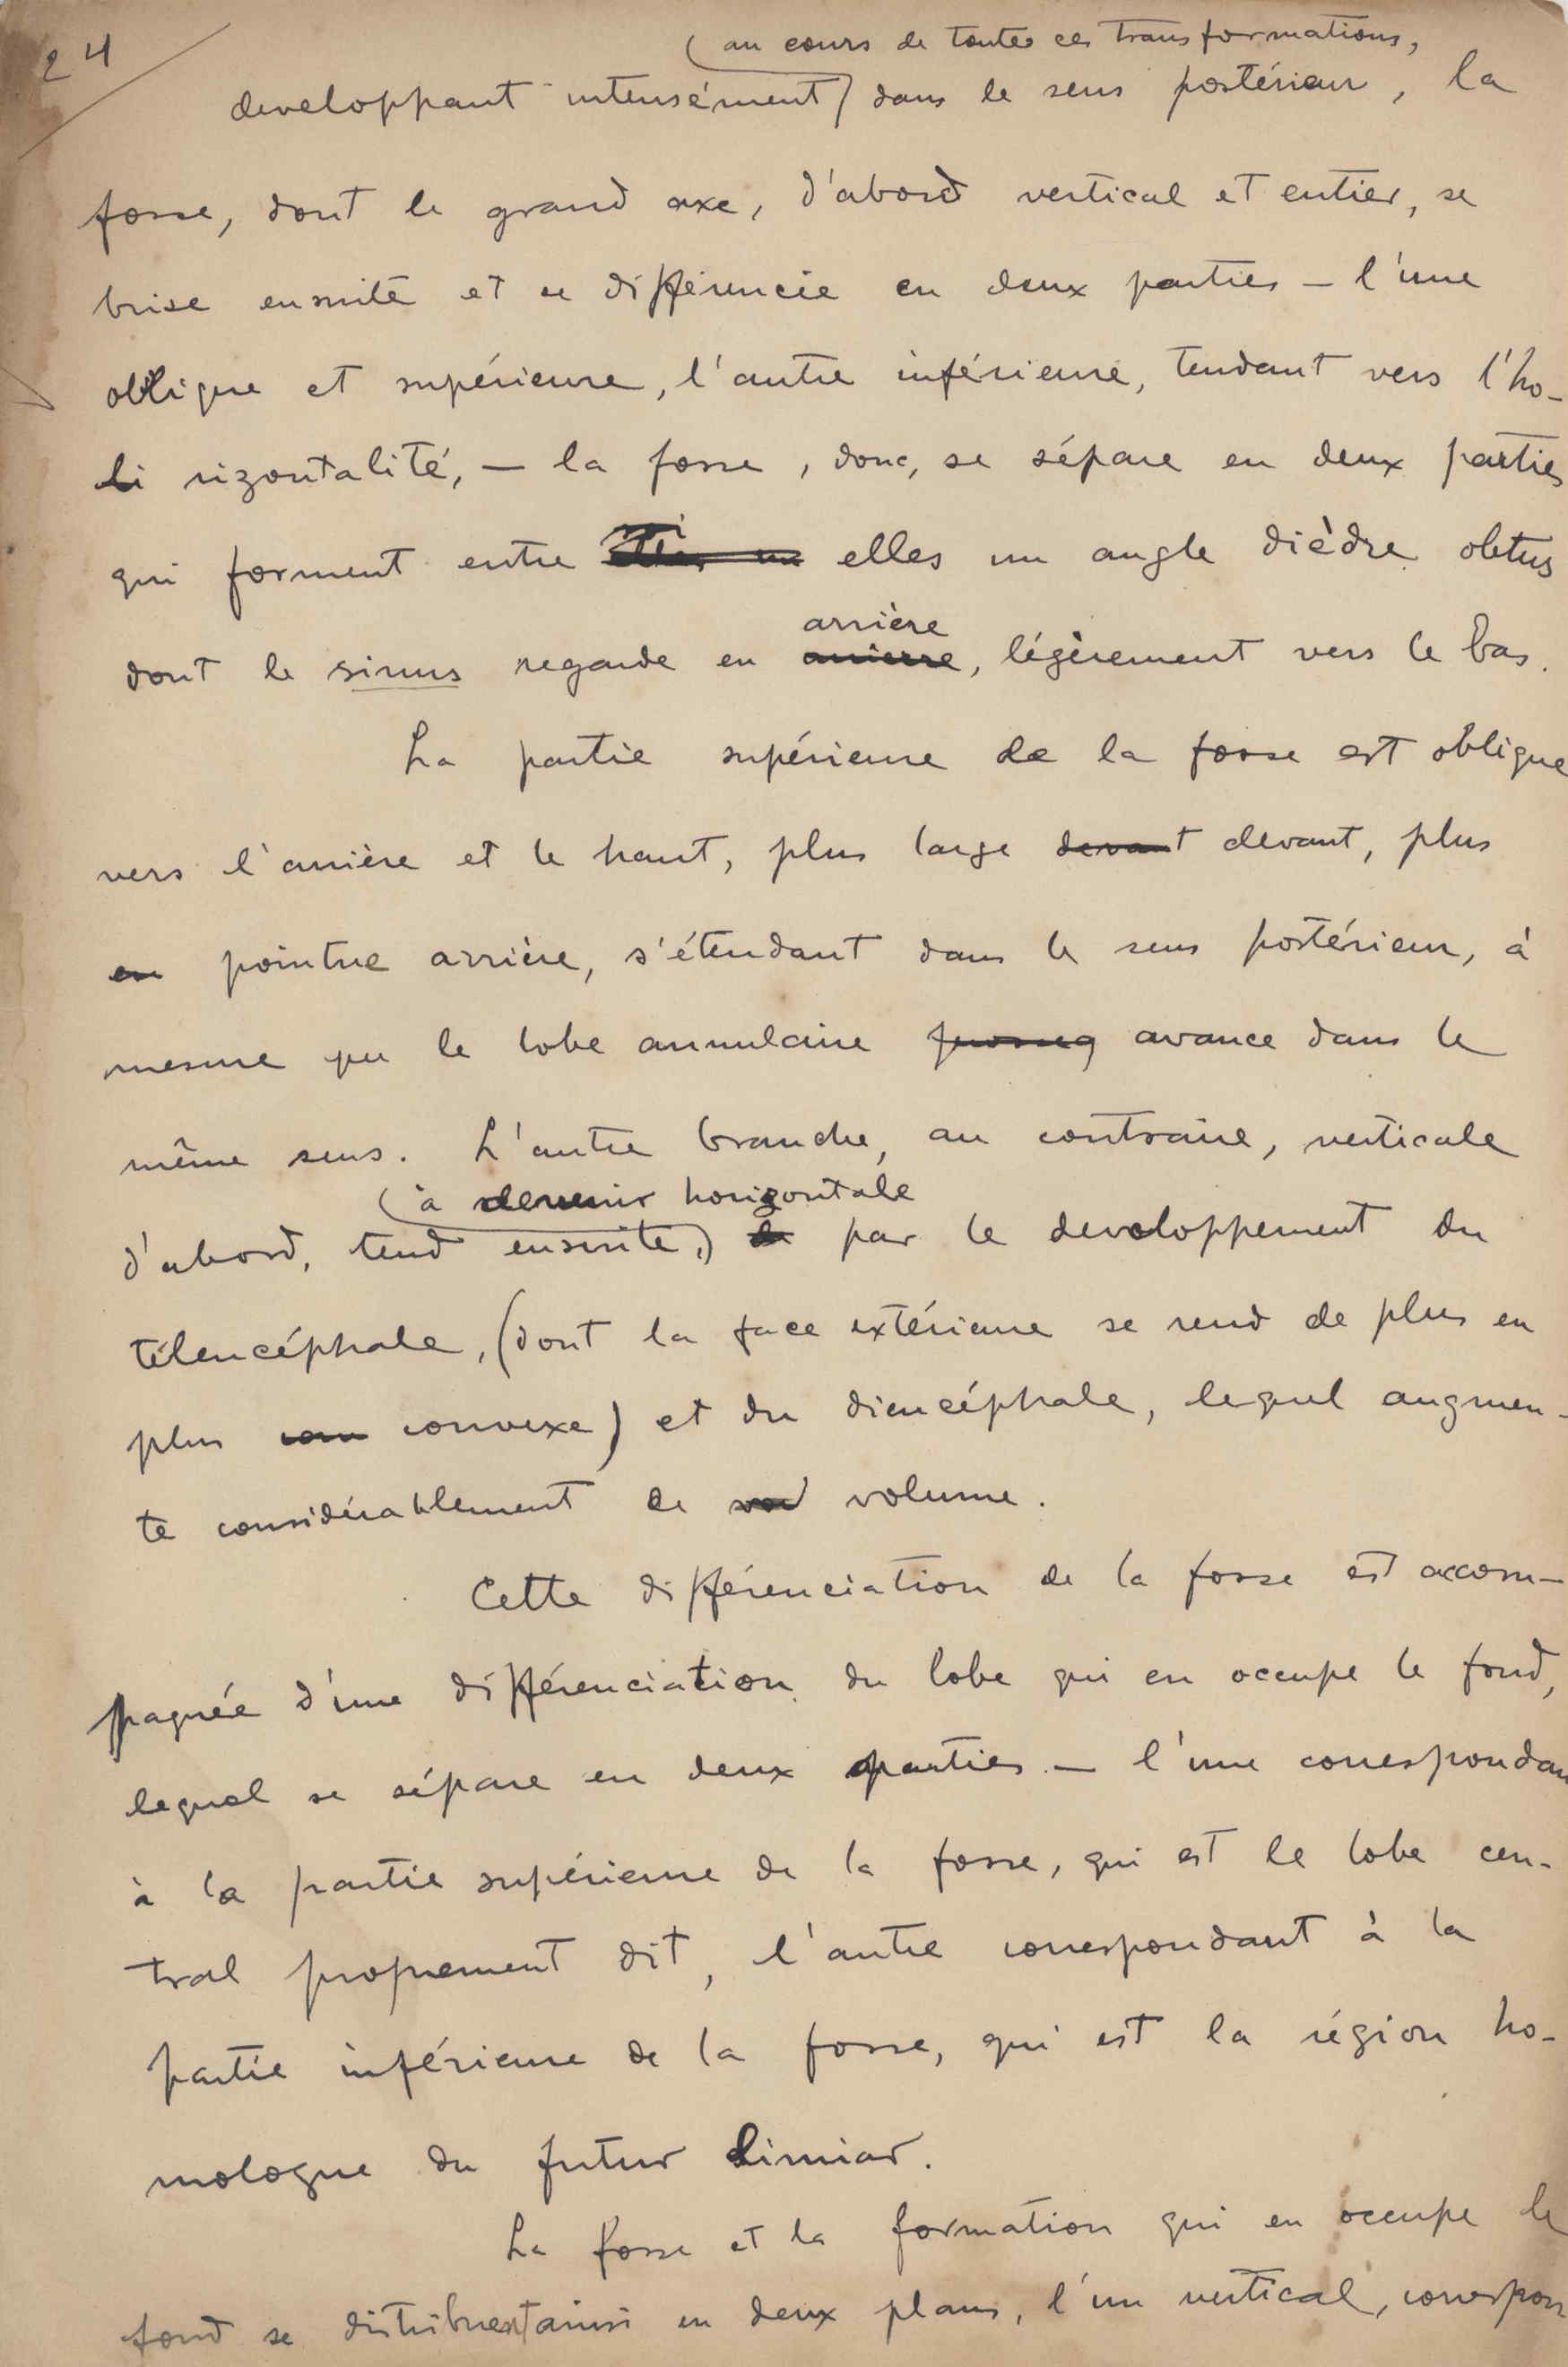 24
(au cours de toutes ces transformations,
developpant intensément) dans le sens postérieur, la
fosse, dont le grand axe, d'abord vertical et entier, se
brise ensuite et se différencie en deux parties — l'une
oblique et supérieure, l'autre inférieure, tendant vers l'ho-
rizontalité, — la fosse, donc, se sépare en deux parties
qui forment entre elles un angle dièdre obtus
arrière
dont le sinus regarde en arrierre, légèrement vers le bas.
La partie supérieure de la fosse est oblique
vers l'arrière et le haut, plus large devant devant, plus
en pointue arrière, s'étendant dans le sens postérieur, à
mesure que le lobe annulaire avance dans le
même sens. L'autre branche, au contraire, verticale
(à devenir horizontale
d'abord, tend ensuite,) par le developpement du
télencéphale, (dont la face extérieure se rend de plus en
plus con convexe) et du diencéphale, lequel augmen-
te considérablement de vol volume.
Cette différenciation de la fosse est accom-
pagnée d'une différenciation du lobe qui en occupe le fond,
lequel se sépare en deux parties — l'une correspondan
à la partie supérieure de la fosse, qui est le lobe cen-
tral proprement dit, l'autre correspondant à la
partie inférieure de la fosse, qui est la région ho-
mologue du futur Limiar.
La fosse et la formation qui en occupe le
fond se distribuent ainsi en deux plans, l'un vertical, correspon